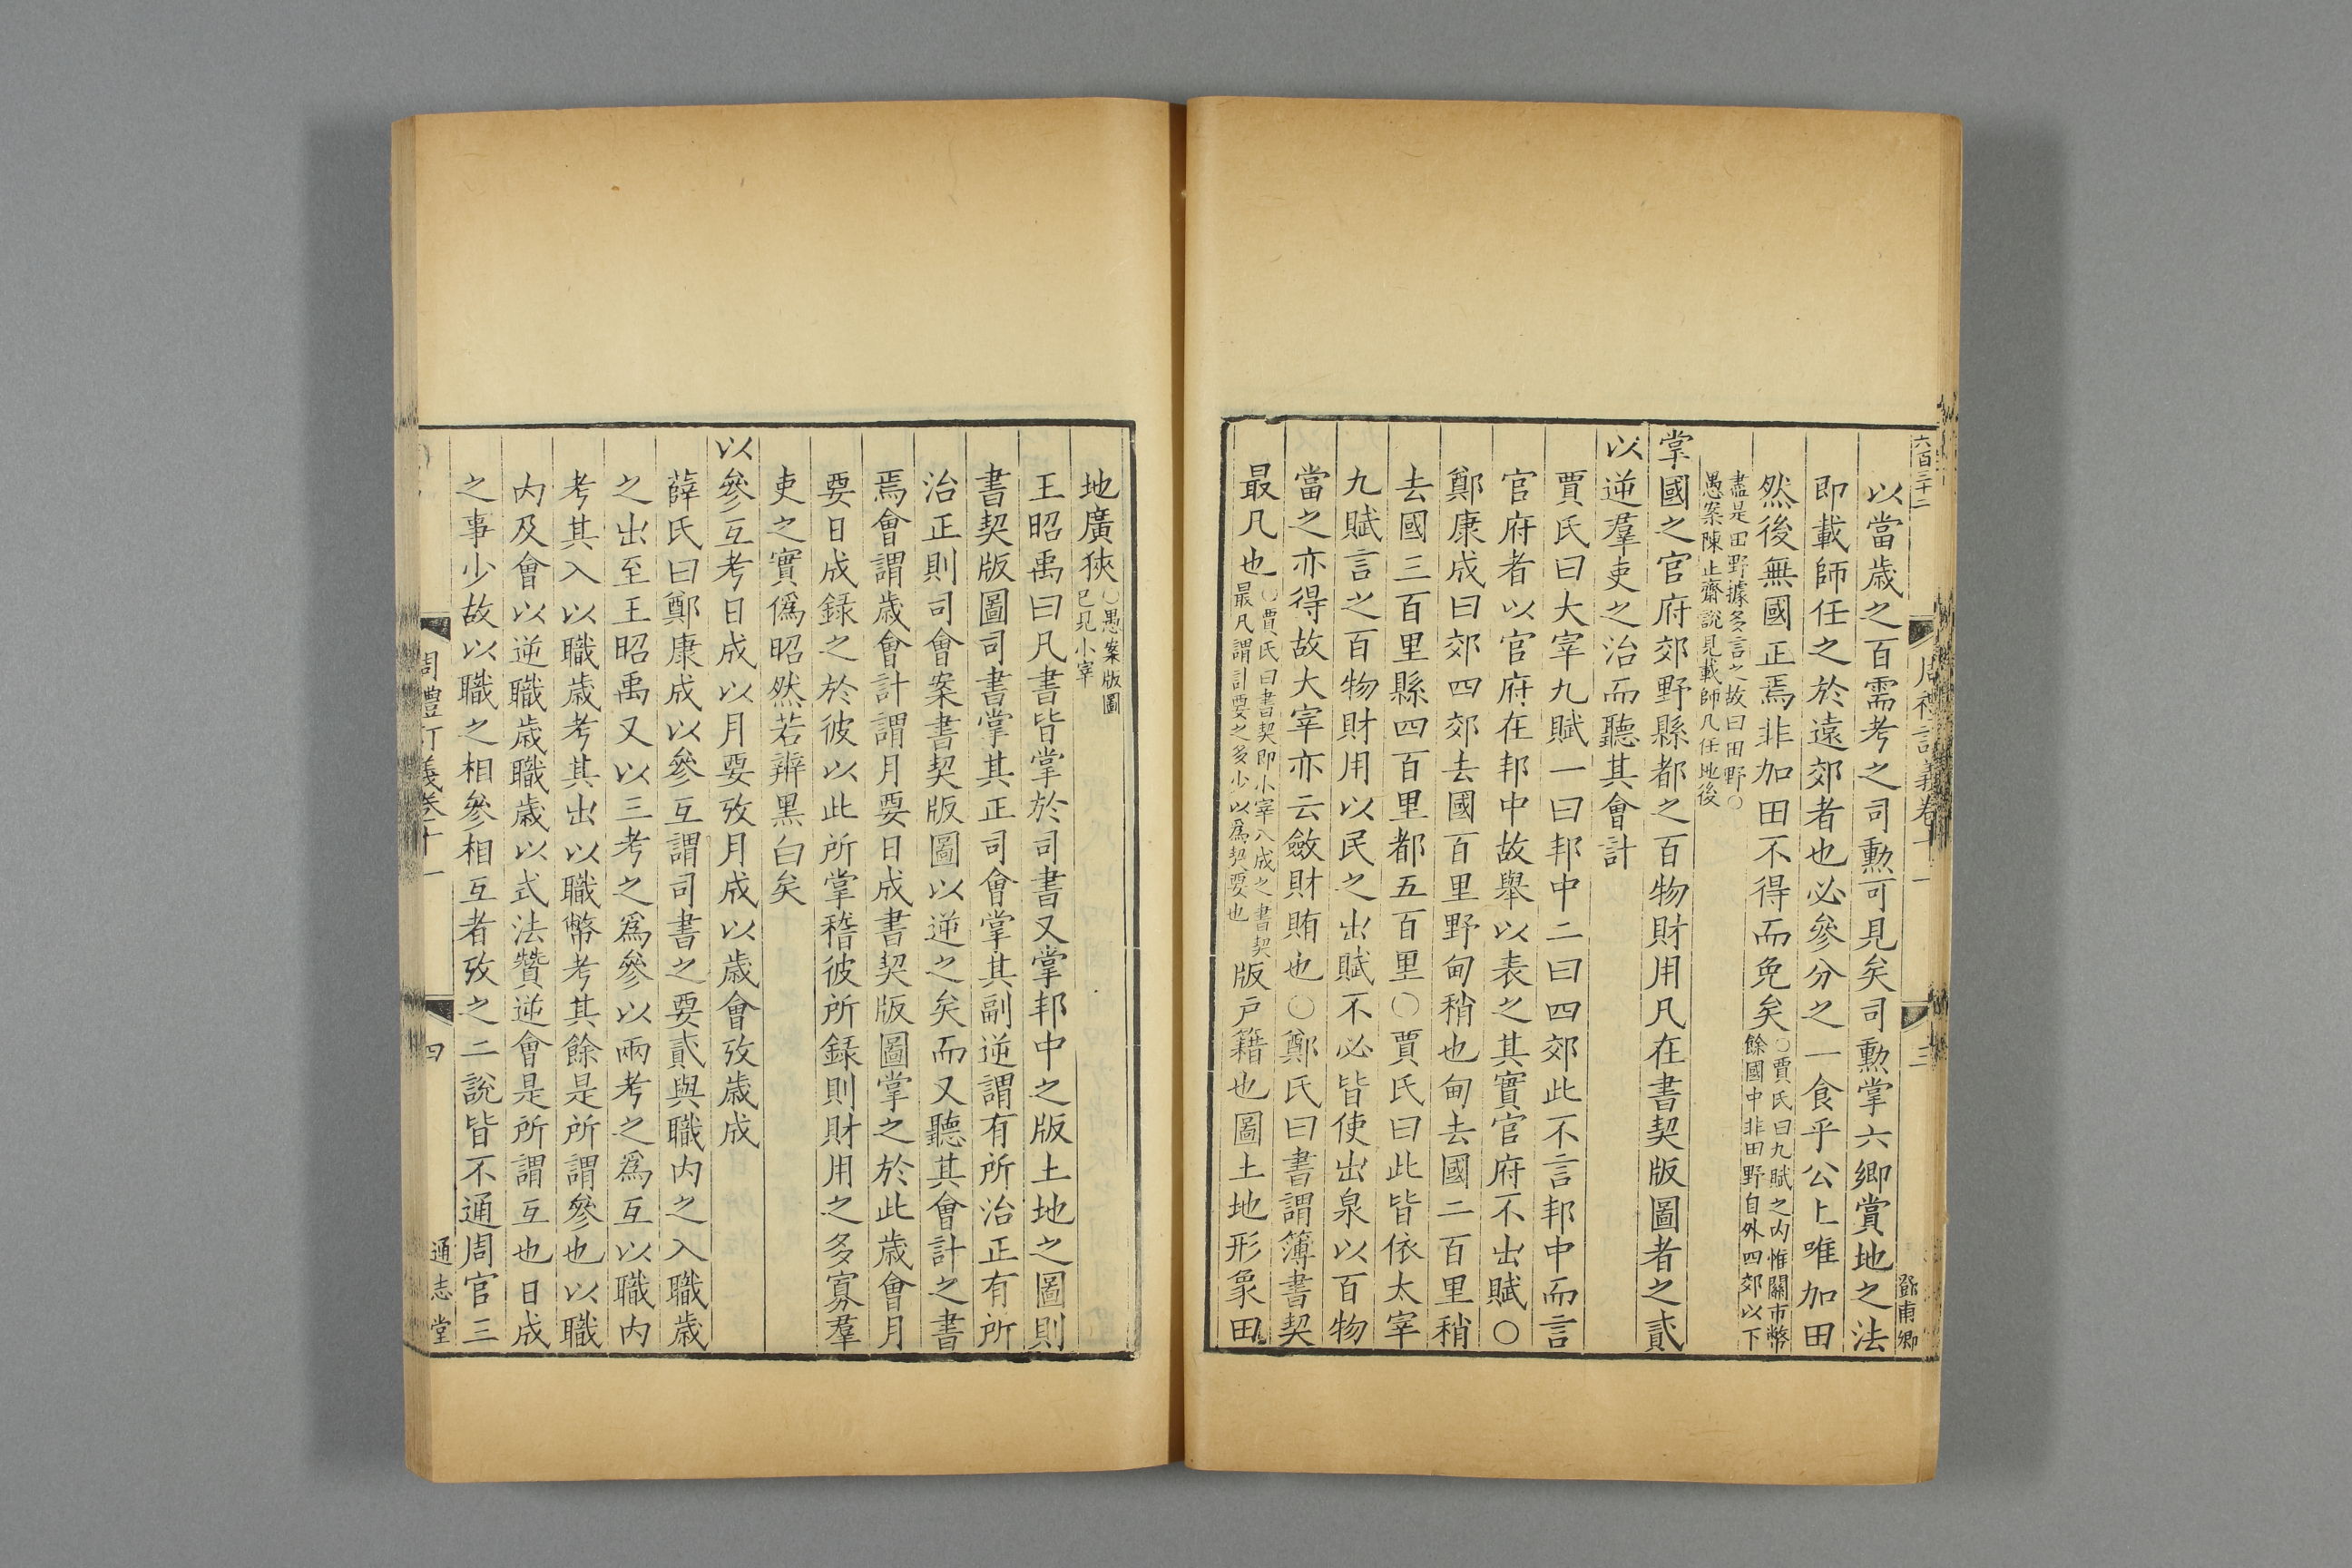 六百三十二
周禮訂義卷十一
三
鄧甫卿
以當歲之百需考之司勲可見矣司勲掌六卿賞地之法
即載師任之於遠郊者也必參分之一食乎公上唯加田
然後無國正焉非加田不得而免矣○賈氏曰九賦之內惟關市幣
餘國中非田野自外四郊以下
盡是田野據多言之故曰田野○
愚案陳止齋說見載師凡任地後
掌國之官府郊野縣都之百物財用凡在書契版圖者之貳
以逆羣吏之治而聽其會計
賈氏曰大宰九賦一曰邦中二曰四郊此不言邦中而言
官府者以官府在邦中故舉以表之其實官府不出賦○
鄭康成曰郊四郊去國百里野甸稍也甸去國二百里稍
去國三百里縣四百里都五百里○賈氏曰此皆依太宰
九賦言之百物財用以民之出賦不必皆使出泉以百物
當之亦得故大宰亦云斂財賄也○鄭氏曰書謂簿書契
最凡也○賈氏曰書契即小宰八成之書契
最凡謂計要之多少以爲契要也
版戶籍也圖土地形象田
地廣狹○愚案版圖
已見小宰
王昭禹曰凡書皆掌於司書又掌邦中之版土地之圖則
書契版圖司書掌其正司會掌其副逆謂有所治正有所
治正則司會案書契版圖以逆之矣而又聽其會計之書
焉會謂歲會計謂月要日成書契版圖掌之於此歲會月
要日成録之於彼以此所掌稽彼所録則財用之多寡羣
吏之實僞昭然若辨黑白矣
以參互考日成以月要攷月成以歲會攷歲成
薛氏曰鄭康成以參互謂司書之要貳與職內之入職歲
之出至王昭禹又以三考之爲參以兩考之爲互以職內
考其入以職歲考其出以職幣考其餘是所謂參也以職
內及會以逆職歲職歲以式法贊逆會是所謂互也日成
之事少故以職之相參相互者攷之二說皆不通周官三
周禮訂義卷十一
四
通志堂